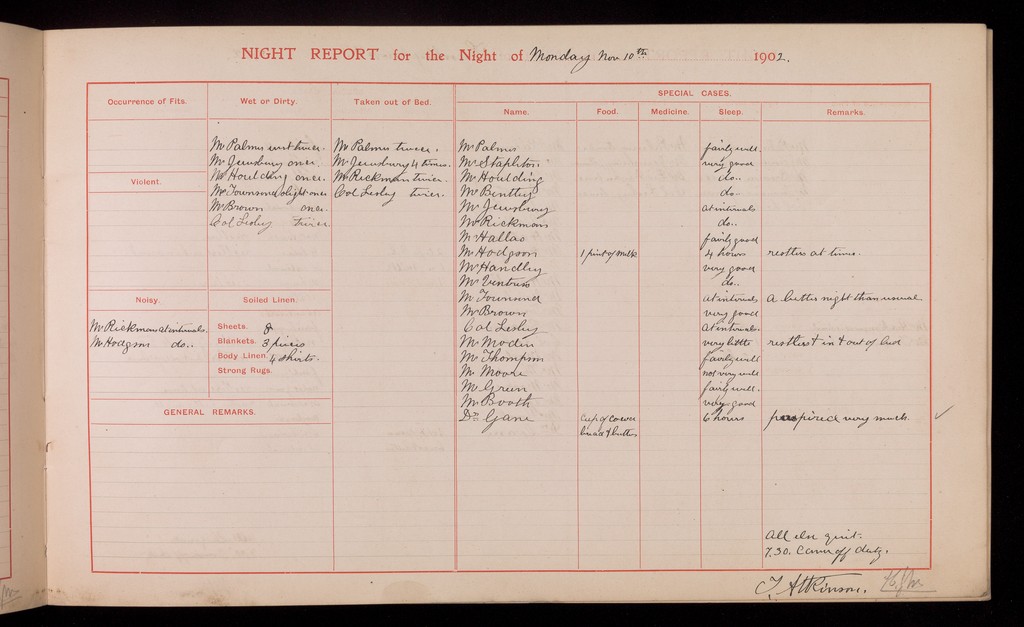 NIGHT REPORT for the Night of Monday Nov 10th 1902.
Occurrence of Fits.
Wet or Dirty.
Mr Palmer wet twice.
Mr Jewsbury once.
Mr Houlding once.
Mr Townsend slight once
Mr Brown once
Col Lesley twice
Taken out of Bed.
Mr Palmer twice.
Mr Jewsbury 4 times.
Mr Rickman twice.
Col Lesley twice.
Violent.
Noisy.
Mr Rickman at intervals.
Mr Hodgson do..
Soiled Linen.
Sheets. 8
Blankets. 3 pieces
Body Linen. 4 shirts.
Strong Rugs.
GENERAL REMARKS.
SPECIAL CASES.
Name. Food. Medicine. Sleep. Remarks.
Mr Palmer fairly well
Mr Stapleton very good
Mr Houlding do..
Mr Bentley do..
Mr Jewsbury at intervals
Mr Rickman do..
Mr Hallas fairly good
Mr Hodgson 1 pint of milk 4 hours restless at times.
Mr Handley very good
Mr Ventress do..
Mr Townsend at intervals a better night than usual
Mr Brown very good
Col Lesley at intervals.
Mr Moden very little restless & in & out of bed
Mr Thompson fairly well
Mr Moore not very well
Mr Green fairly well.
Mr Booth very good
Dr Gane cup of cocoa 6 hours perspired very much.
bread & butter
All else quiet.
7.30. Came off duty.
T. Atkinson.